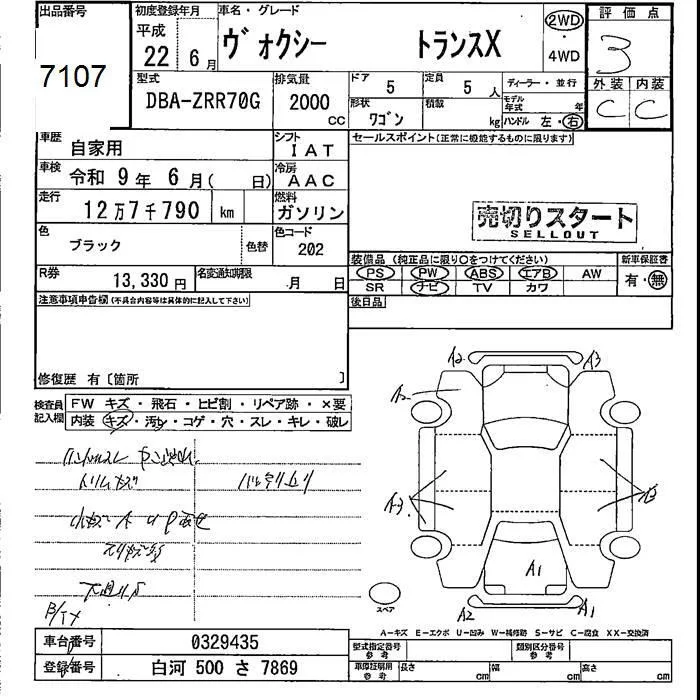 出品番号
7107
初度登録年月
平成
22年 6月
車名・グレード
ヴォクシー トランスX
2WD
・
4WD
評価点
3
外装 内装
C C
型式
DBA-ZRR70G
排気量
2000
CC
ドア
5
定員
5 人
ディーラー・並行
形状
ワゴン
積載
kg
モデル年式 年
ハンドル 左・右
車歴
自家用
シフト
IAT
車検
令和 9年 6月( 日)
冷房
AAC
走行
12万7千790 km
燃料
ガソリン
色
ブラック
色替
色コード
202
R券
13,330円
名変通知期限
月 日
セールスポイント(正常に機能するものに限ります)
売切りスタート
SELLOUT
装備品 (純正品に限り○をつけてください)
新車保証書
PS PW ABS エアB AW
有・無
SR ナビ TV カワ
後日品
注意事項申告欄(不具合内容等は具体的に記入して下さい)
修復歴 有〔箇所 〕
検査員記入欄
FW キズ・飛石・ヒビ割・リペア跡・×要
内装 キズ・汚れ・コゲ・穴・スレ・キレ・破レ
A2
A3
A2
A3
A1
A2
A1
スペア
A-キズ E-エクボ U-凹み W-補修跡 S-サビ C-腐食 XX-交換済
車台番号
0329435
登録番号
白河 500 さ 7869
型式指定番号
参考
類別区分番号
参考
車庫証明用
参考
長さ cm
幅 cm
高さ cm